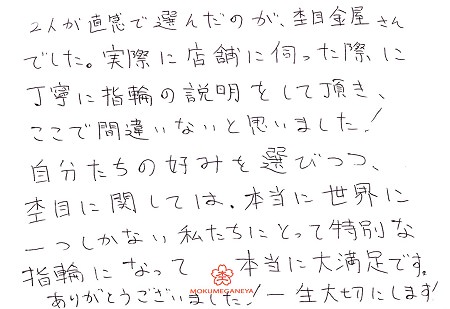 2人が直感で選んだのが、杢目金屋さん
でした。実際に店舗に伺った際に
丁寧に指輪の説明をして頂き、
ここで間違いないと思いました!
自分たちの好みを選びつつ、
杢目に関しては、本当に世界に
一つしかない私たちにとって特別な
指輪になって 本当に大満足です。
MOKUMEGANEYA
ありがとうございました!一生大切にします!